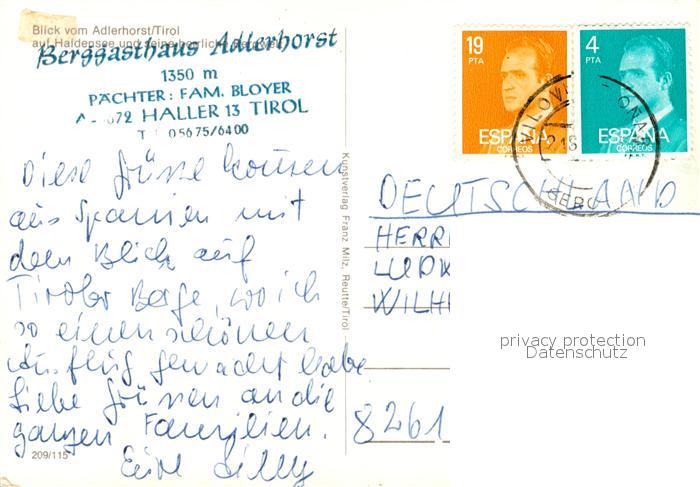 Blick vom Adlerhorst/Tirol
auf Haldensee und seine herrliche Bergwelt
Berggasthaus Adlerhorst
1350 m
PÄCHTER: FAM. BLOYER
A - 672 HALLER 13 TIROL
T 05675/6400
Diese Grüsse kommen
aus Spanien mit
dem Blick auf
Tiroler Berge, wo ich
so einen schönen
Ausflug gemacht habe
Liebe Grüsse an die
ganzen Familien.
Eure Lilly
209/115
Kunstverlag Franz Milz, Reutte/Tirol
19
PTA
ESPAÑA
CORREOS
4
PTA
ESPAÑA
CORREOS
DEUTSCHLAND
HERR
LUDW
WILH
8261
privacy protection
Datenschutz